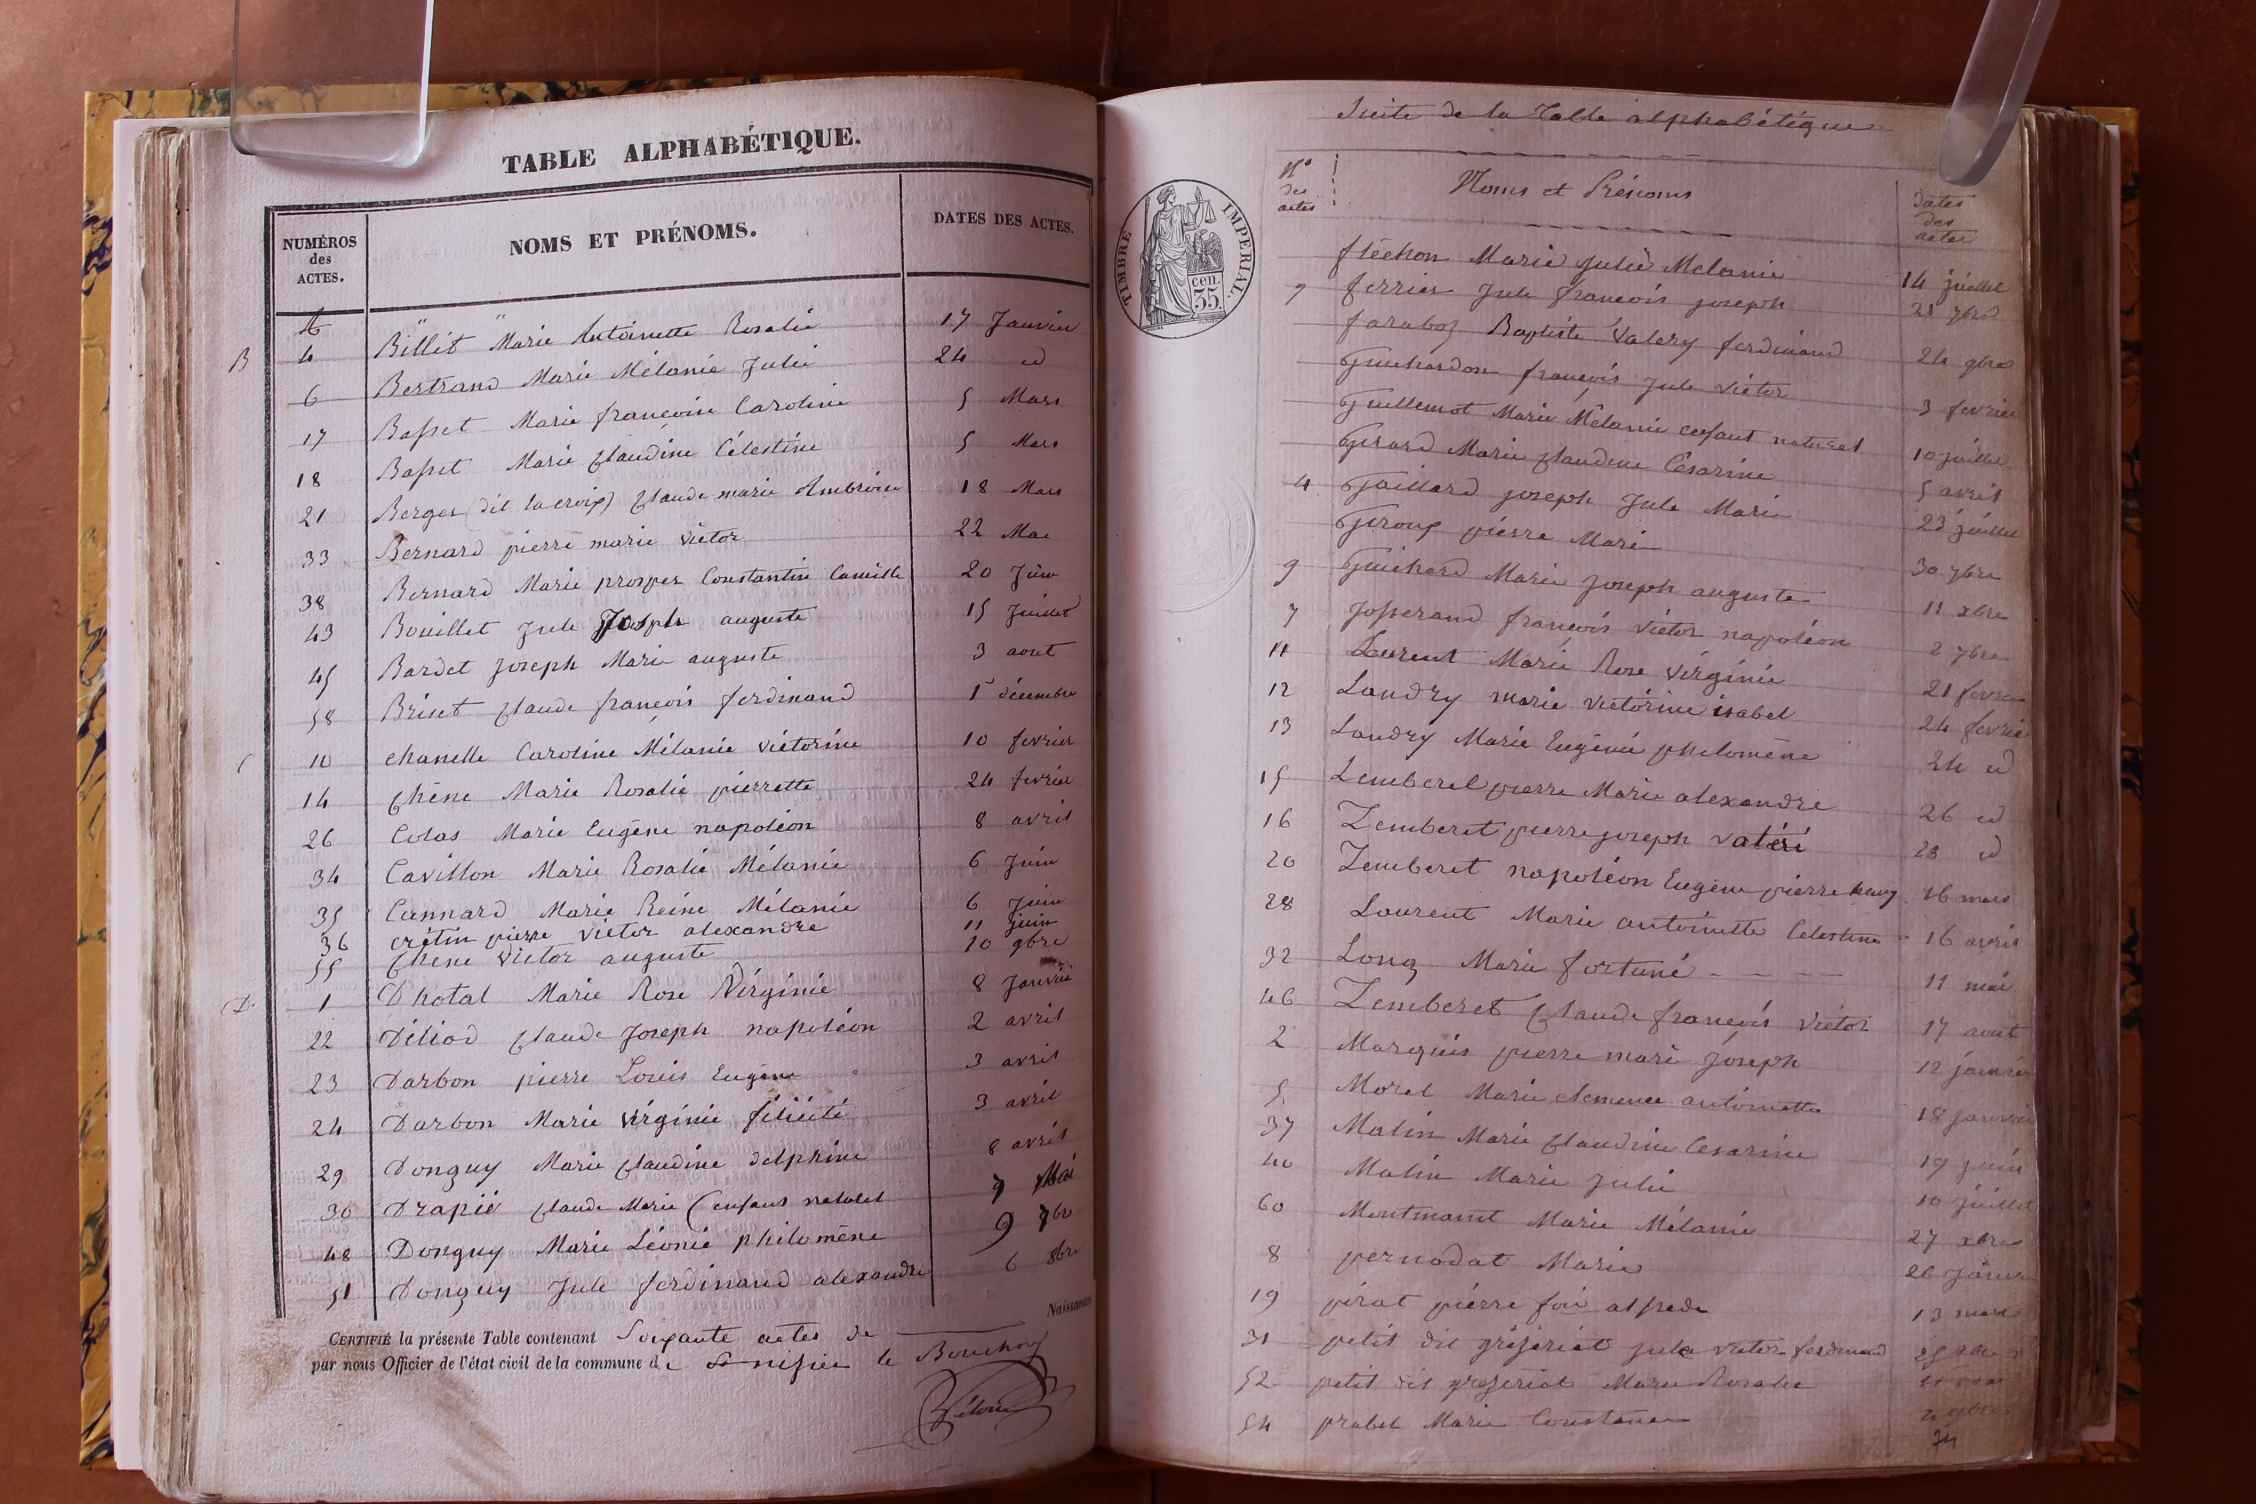 TABLE ALPHABÉTIQUE.
NUMÉROS des ACTES.
NOMS ET PRÉNOMS.
DATES DES ACTES.
B 4 Billet Marie Antoinette Rosalie 17 Janvier
6 Bertrand Marie Mélanie Julie 24 id
17 Basset Marie francoise Caroline 5 Mars
18 Basset Marie Claudine Célestine 5 Mars
21 Berger (dit lacroix) Claude marie Ambroise 18 Mars
33 Bernard pierre marie victor 22 Mai
38 Bernard Marie prosper Constantin Camille 20 Juin
43 Bouillet Jule Joseph auguste 15 Juillet
45 Bardet Joseph Marie auguste 3 aout
58 Briset Claude francois ferdinand 1r décembre
C 10 chanelle Caroline Mélanie victorine 10 fevrier
14 Chêne Marie Rosalie pierrette 24 fevrier
26 Colas Marie Eugène napoléon 8 avril
34 Cavillon Marie Rosalie Mélanie 6 Juin
35 Cannard Marie Reine Mélanie 6 Juin
36 crétin pierre victor alexandre 11 juin
55 Chene Victor auguste 10 9bre
D 1 Dhotal Marie Rose Virginie 8 Janvier
22 Déliod Claude Joseph napoléon 2 avril
23 Darbon pierre Louis Eugène 3 avril
24 Darbon Marie virginie félicité 3 avril
29 Donguy Marie Claudine delphine 8 avril
30 Drapié Claude Marie (enfant naturel 7 Mai
48 Donguy Marie Léonie philomène 9 7bre
51 Donguy Jule ferdinand alexandre 6 8bre
Naissances
CERTIFIÉ la présente Table contenant Soixante actes de
par nous Officier de l'état civil de la commune de St nizier le Bouchoux
Suite de la Table alphabétique
TIMBRE IMPERIAL.
35 cen.
No des actes
Noms et Prénoms
Dates des actes
fléchon Marie Julie Melanie 14 juillet
7 ferrier Jule francois joseph 21 7bre
faraboz Baptiste Valery ferdinand 24 9bre
Guichardon françois Jule victor 3 fevrier
Guillemot Marie Mélanie enfant naturel 10 juillet
Girard Marie Claudine Césarine 5 avril
4 Gaillard joseph Jule Marie 23 juillet
Giroux pierre Marie 30 7bre
9 Guichard Marie Joseph auguste 11 xbre
7 Josserand francois victor napoléon 2 7bre
11 Laurent Marie Rose virginie 21 fevrier
12 Landry marie victorine isabel 24 fevrier
13 Landry Marie Eugénie philomène 24 id
15 Lemberel pierre Marie alexandre 26 id
16 Lemberet pierre joseph valéri 28 id
20 Lemberet napoléon Eugène pierre henry 16 mars
28 Laurent Marie antoinette Celestine 16 avril
32 Long Marie fortuné 11 mai
46 Lemberet Claude françois victor 17 aout
2 Marquis pierre marie Joseph 12 janvier
5 Morel Marie clemence antoinette 18 janvier
37 Matin Marie Claudine Cesarine 19 juin
40 Matin Marie Julie 10 juillet
60 Montmamit Marie Mélanie 27 xbre
8 pernodat Marie 26 Janvier
19 pirat pierre foi alfrede 13 mars
31 petit dit gréfériat Jule victor ferdinand
52 petit dit gréfériat Marie Rosalie
54 prabel Marie Constance